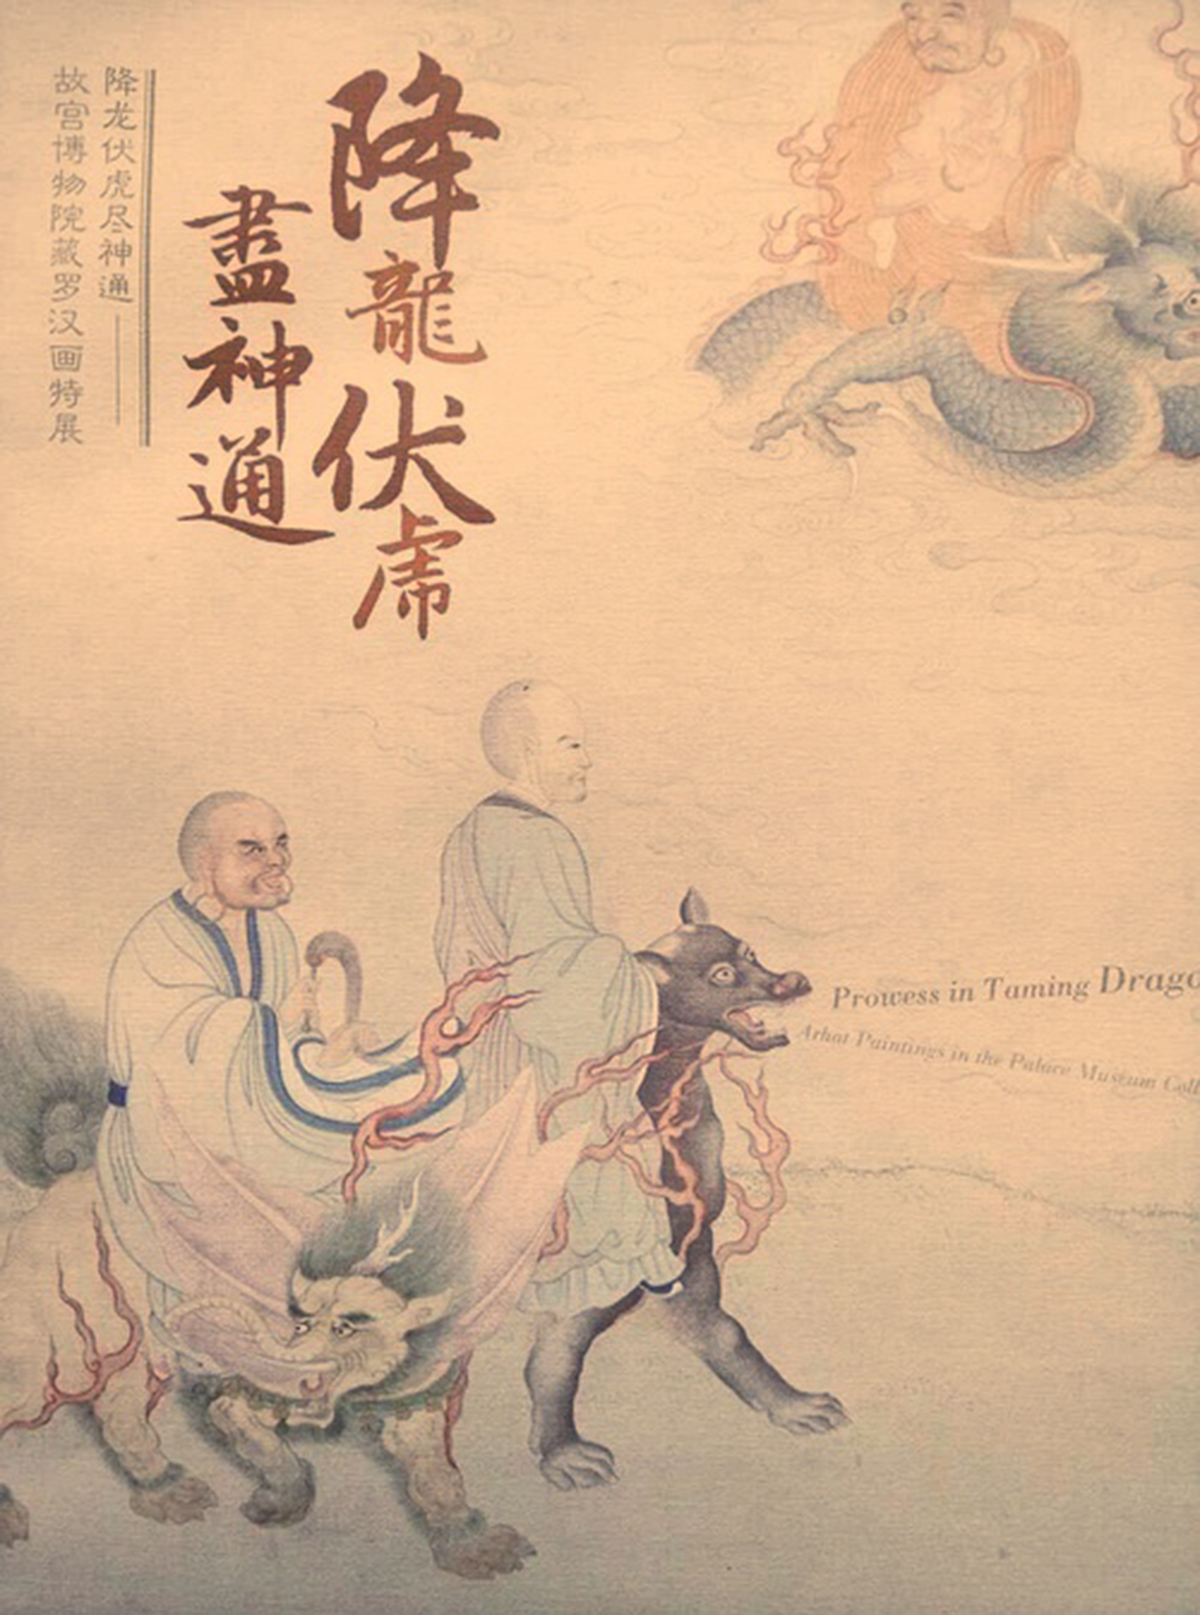 降龍伏虎
盡神通
降龙伏虎尽神通——
故宫博物院藏罗汉画特展
Prowess in Taming Drago
Arhat Paintings in the Palace Museum Coll